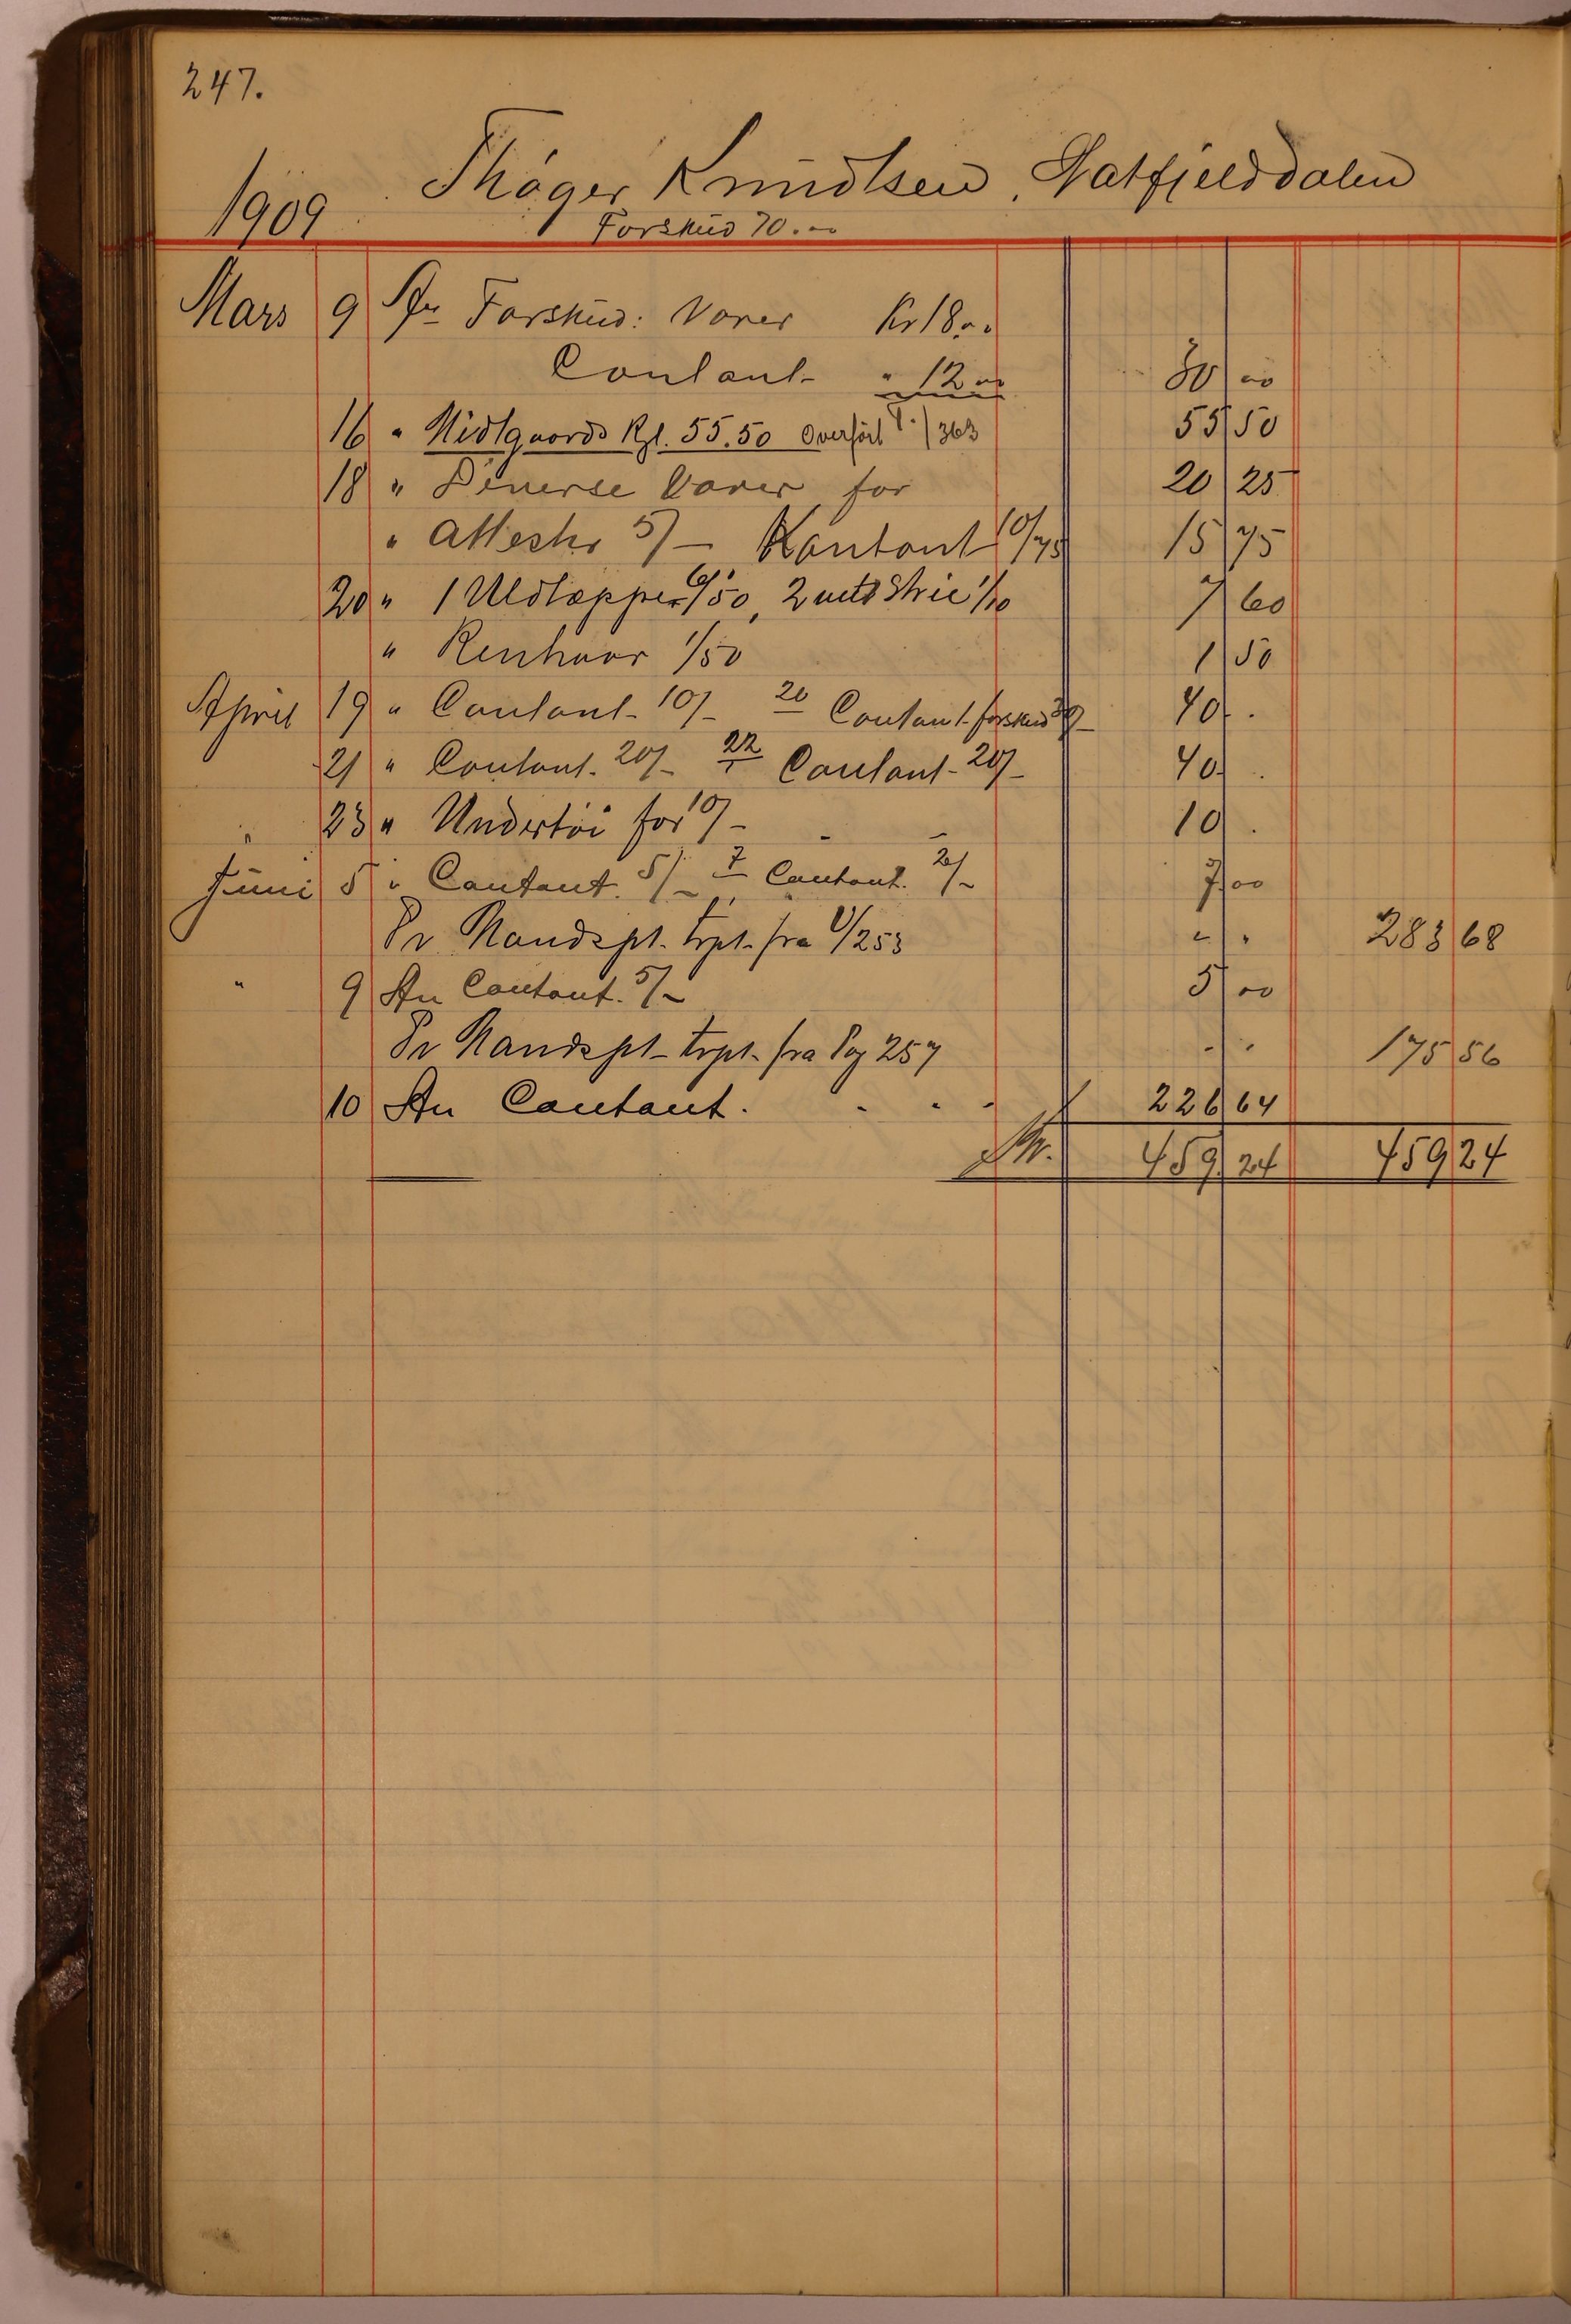 247.
Thøger Knudtsen, Hatfjelddalen
1909 Forskud 70.00
Mars 9 An Forskud: Varer Kr 18.00
Contant " 12.00 30 00
16 " Midtgaards Rgl. 55.50 Overført P./363 55 50
18 " Diverse Varer for 20 25
" Attester 5/- Kontant 10/75 15 75
20 " 1 Uldtæppe 6/50, 2 mtr Strie 1/10 7 60
" Renhaar 1/50 1 50
April 19 " Contant 10/- 20 Contant forskud 30/- 40 .
21 " Contant. 20/- 22 Contant 20/- 40 .
" 23 " Undertöi for 10/- 10 .
Juni 5 " Contant. 5/- 7 Contant. 2/- 7 00
Pr Mandspl. trpt. fra P/253 " " 283 68
" 9 An Contant. 5/- 5 00
Pr Mandspl. trpt. fra Pag 257 - - 175 56
10 An Contant. 226 64
Kr. 459 24 459 24